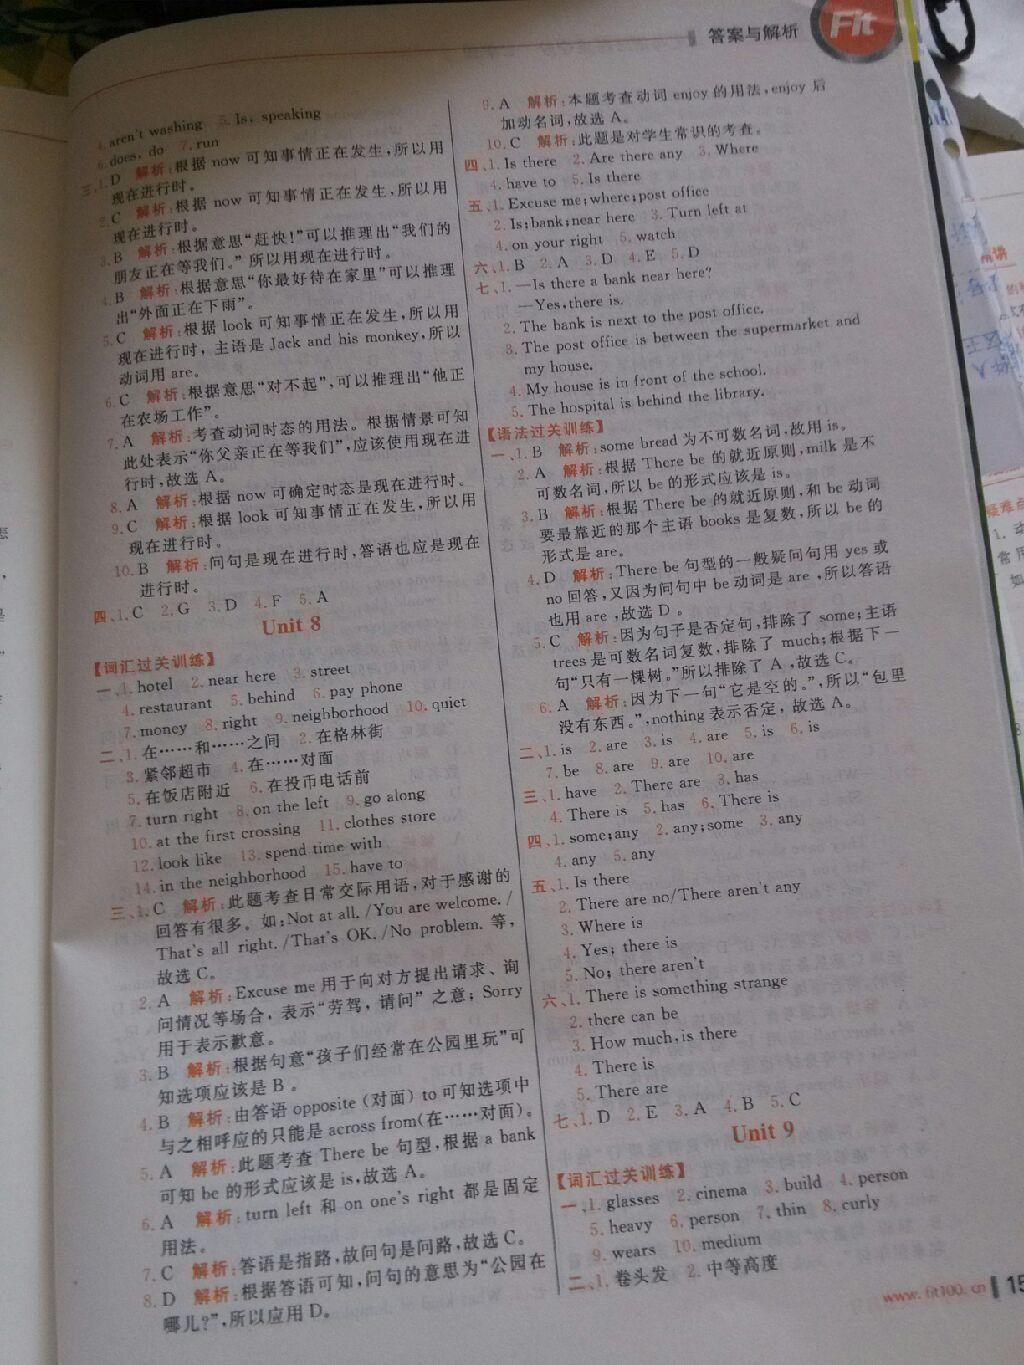 答案与解析
Fit
4. aren't washing 5. Is, speaking
6. does, do 7. run
三、1. D 解析:根据 now 可知事情正在发生,所以用
现在进行时。
2. C 解析:根据 now 可知事情正在发生,所以用
现在进行时。
3. B 解析:根据意思“赶快!”可以推理出“我们的
朋友正在等我们。”所以用现在进行时。
4. B 解析:根据意思“你最好待在家里”可以推理
出“外面正在下雨”。
5. C 解析:根据 look 可知事情正在发生,所以用
现在进行时, 主语是 Jack and his monkey,所以
动词用 are。
6. C 解析:根据意思“对不起”,可以推理出“他正
在农场工作”。
7. A 解析:考查动词时态的用法。根据情景可知
此处表示“你父亲正在等我们”,应该使用现在进
行时,故选 A。
8. A 解析:根据 now 可确定时态是现在进行时。
9. C 解析:根据 look 可知事情正在发生,所以用
现在进行时。
10. B 解析:问句是现在进行时,答语也应是现在
进行时。
四、1. C 2. G 3. D 4. F 5. A
Unit 8
【词汇过关训练】
一、1. hotel 2. near here 3. street
4. restaurant 5. behind 6. pay phone
7. money 8. right 9. neighborhood 10. quiet
二、1. 在……和……之间 2. 在格林街
3. 紧邻超市 4. 在……对面
5. 在饭店附近 6. 在投币电话前
7. turn right 8. on the left 9. go along
10. at the first crossing 11. clothes store
12. look like 13. spend time with
14. in the neighborhood 15. have to
三、1. C 解析:此题考查日常交际用语,对于感谢的
回答有很多。如:Not at all. /You are welcome. /
That's all right. /That's OK. /No problem. 等,
故选 C。
2. A 解析:Excuse me 用于向对方提出请求、询
问情况等场合, 表示“劳驾,请问” 之意; Sorry
用于表示歉意。
3. B 解析:根据句意“孩子们经常在公园里玩”可
知选项应该是 B 。
4. B 解析:由答语 opposite (对面) to 可知选项中
与之相呼应的只能是 across from(在……对面)。
5. A 解析:此题考查 There be 句型,根据 a bank
可知 be 的形式应该是 is,故选 A。
6. A 解析:turn left 和 on one's right 都是固定
用法。
7. C 解析:答语是指路,故问句是问路,故选 C。
8. D 解析:根据答语可知,问句的意思为“公园在
哪儿?”,所以应用 D。
9. A 解析:本题考查动词 enjoy 的用法,enjoy 后
加动名词,故选 A。
10. C 解析:此题是对学生常识的考查。
四、1. Is there 2. Are there any 3. Where
4. have to 5. Is there
五、1. Excuse me;where;post office
2. Is;bank;near here 3. Turn left at
4. on your right 5. watch
六、1. B 2. A 3. D 4. E 5. D
七、1. —Is there a bank near here?
—Yes,there is.
2. The bank is next to the post office.
3. The post office is between the supermarket and
my house.
4. My house is in front of the school.
5. The hospital is behind the library.
【语法过关训练】
一、1. B 解析:some bread 为不可数名词,故用 is。
2. A 解析:根据 There be 的就近原则,milk 是不
可数名词,所以 be 的形式应该是 is。
3. B 解析:根据 There be 的就近原则,和 be 动词
要最靠近的那个主语 books 是复数,所以 be 的
形式是 are。
4. D 解析:There be 句型的一般疑问句用 yes 或
no 回答,又因为问句中 be 动词是 are ,所以答语
也用 are ,故选 D 。
5. C 解析:因为句子是否定句,排除了 some;主语
trees 是可数名词复数,排除了 much;根据下一
句“只有一棵树。”所以排除了 A ,故选 C。
6. A 解析:因为下一句“它是空的。”,所以“包里
没有东西。”,nothing 表示否定, 故选 A。
二、1. is 2. are 3. is 4. are 5. is 6. is
7. be 8. are 9. are 10. are
三、1. have 2. There are 3. has
4. There is 5. has 6. There is
四、1. some;any 2. any;some 3. any
4. any 5. any
五、1. Is there
2. There are no/There aren't any
3. Where is
4. Yes; there is
5. No; there aren't
六、1. There is something strange
2. there can be
3. How much,is there
4. There is
5. There are
七、1. D 2. E 3. A 4. B 5. C
Unit 9
【词汇过关训练】
一、1. glasses 2. cinema 3. build 4. person
5. heavy 6. person 7. thin 8. curly
9. wears 10. medium
二、1. 卷头发 2. 中等高度
www.fit100.cn 15
精讲
疑难点
1. 动
常 用
如